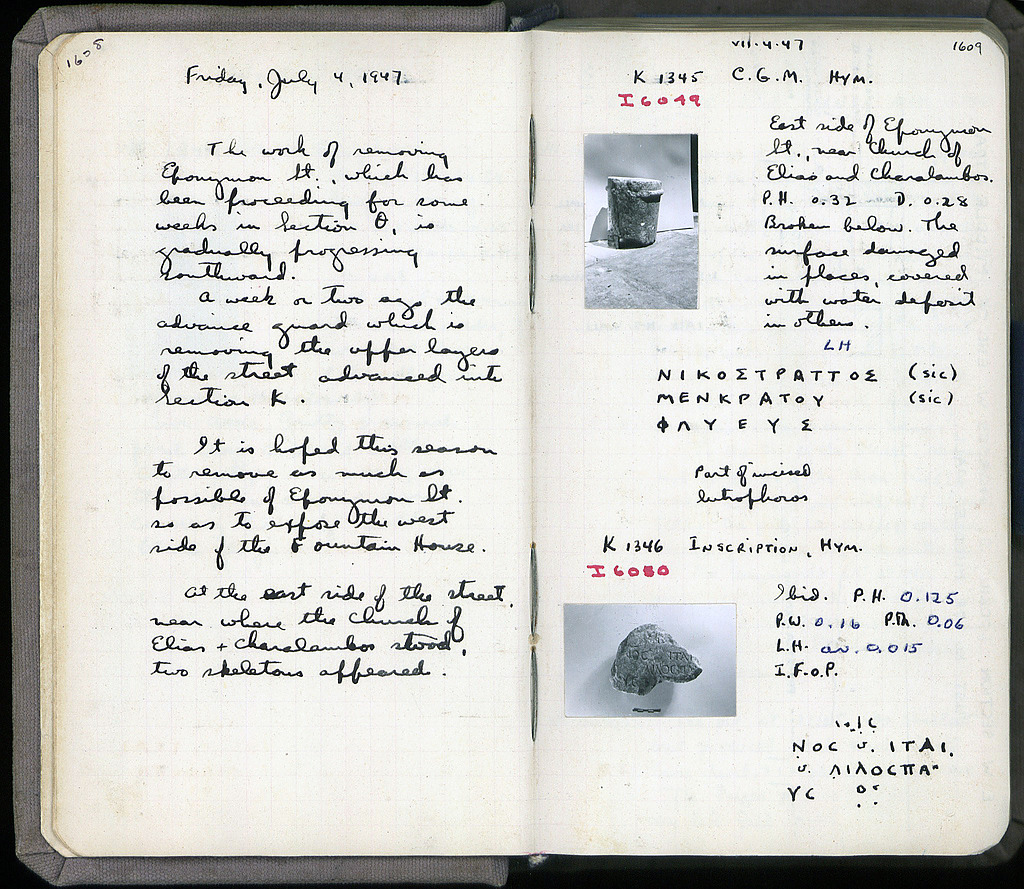 1608
Friday, July 4, 1947
The work of removing
Eponymon St., which has
been proceeding for some
weeks in Section Θ, is
gradually progressing
southward.
A week or two ago the
advance guard which is
removing the upper layers
of the street advanced into
Section K.
It is hoped this season
to remove as much as
possible of Eponymon St.
so as to expose the west
side of the Fountain House.
At the east side of the street,
near where the Church of
Elias + Charalambos stood,
two skeletons appeared.
VII.4.47
1609
K 1345 C.G.M. Hym.
I 6049
East side of Eponymon
St., near Church of
Elias and Charalambos.
P.H. 0.32 D. 0.28
Broken below. The
surface damaged
in places, covered
with water deposit
in others.
LH
ΝΙΚΟΣΤΡΑΤΤΟΣ (sic)
ΜΕΝΚΡΑΤΟΥ (sic)
ΦΛΥΕΥΣ
Part of incised
lutrophoros
K 1346 INSCRIPTION, HYM.
I 6050
Ibid. P.H. 0.125
P.W. 0.16 P.Th. 0.06
L.H. av. 0.015
I.F.O.P.
ΝΟC υ. ΙΤΑΙ.
υ. ΛΙΛΟCΠΑ
ΥC